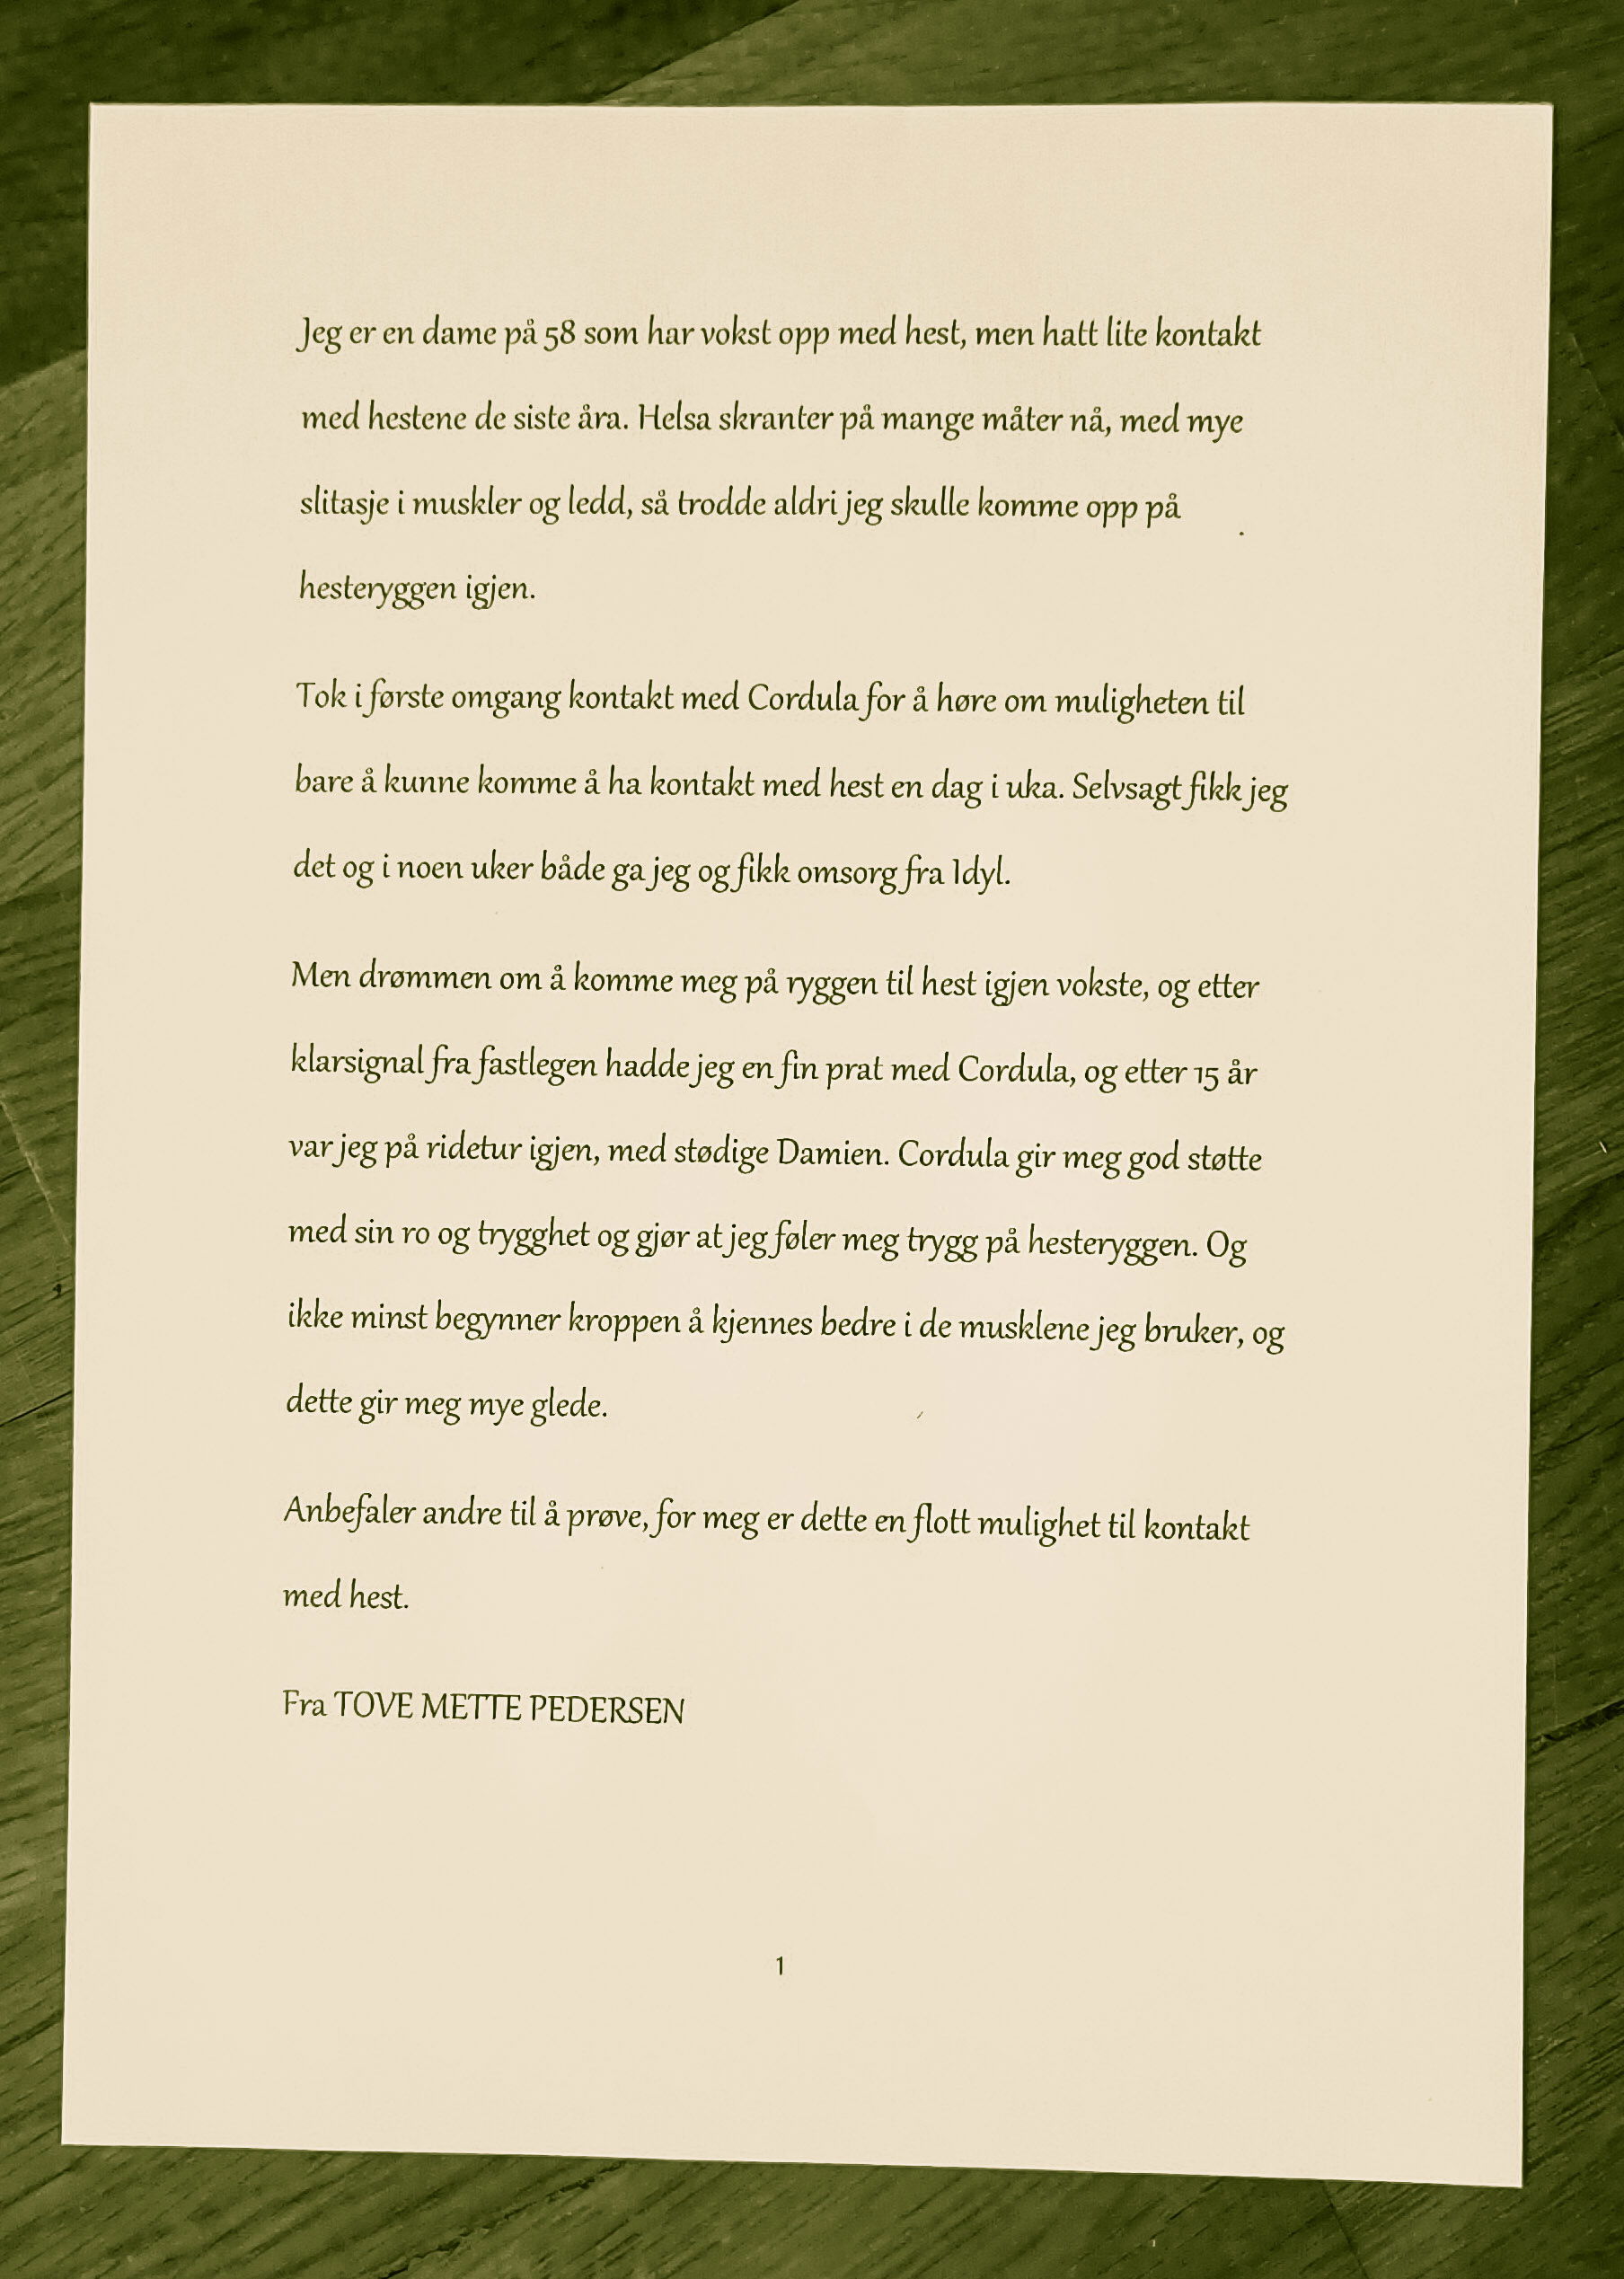 Jeg er en dame på 58 som har vokst opp med hest, men hatt lite kontakt
med hestene de siste åra. Helsa skranter på mange måter nå, med mye
slitasje i muskler og ledd, så trodde aldri jeg skulle komme opp på
hesteryggen igjen.
Tok i første omgang kontakt med Cordula for å høre om muligheten til
bare å kunne komme å ha kontakt med hest en dag i uka. Selvsagt fikk jeg
det og i noen uker både ga jeg og fikk omsorg fra Idyl.
Men drømmen om å komme meg på ryggen til hest igjen vokste, og etter
klarsignal fra fastlegen hadde jeg en fin prat med Cordula, og etter 15 år
var jeg på ridetur igjen, med stødige Damien. Cordula gir meg god støtte
med sin ro og trygghet og gjør at jeg føler meg trygg på hesteryggen. Og
ikke minst begynner kroppen å kjennes bedre i de musklene jeg bruker, og
dette gir meg mye glede.
Anbefaler andre til å prøve, for meg er dette en flott mulighet til kontakt
med hest.
Fra TOVE METTE PEDERSEN
1